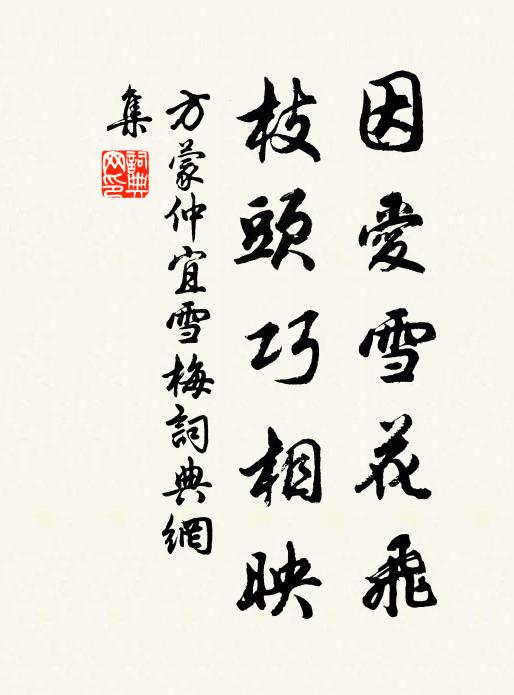 因愛雪花飛
枝頭巧相映
方蒙仲宜雪梅詞典網
集
詞典網印